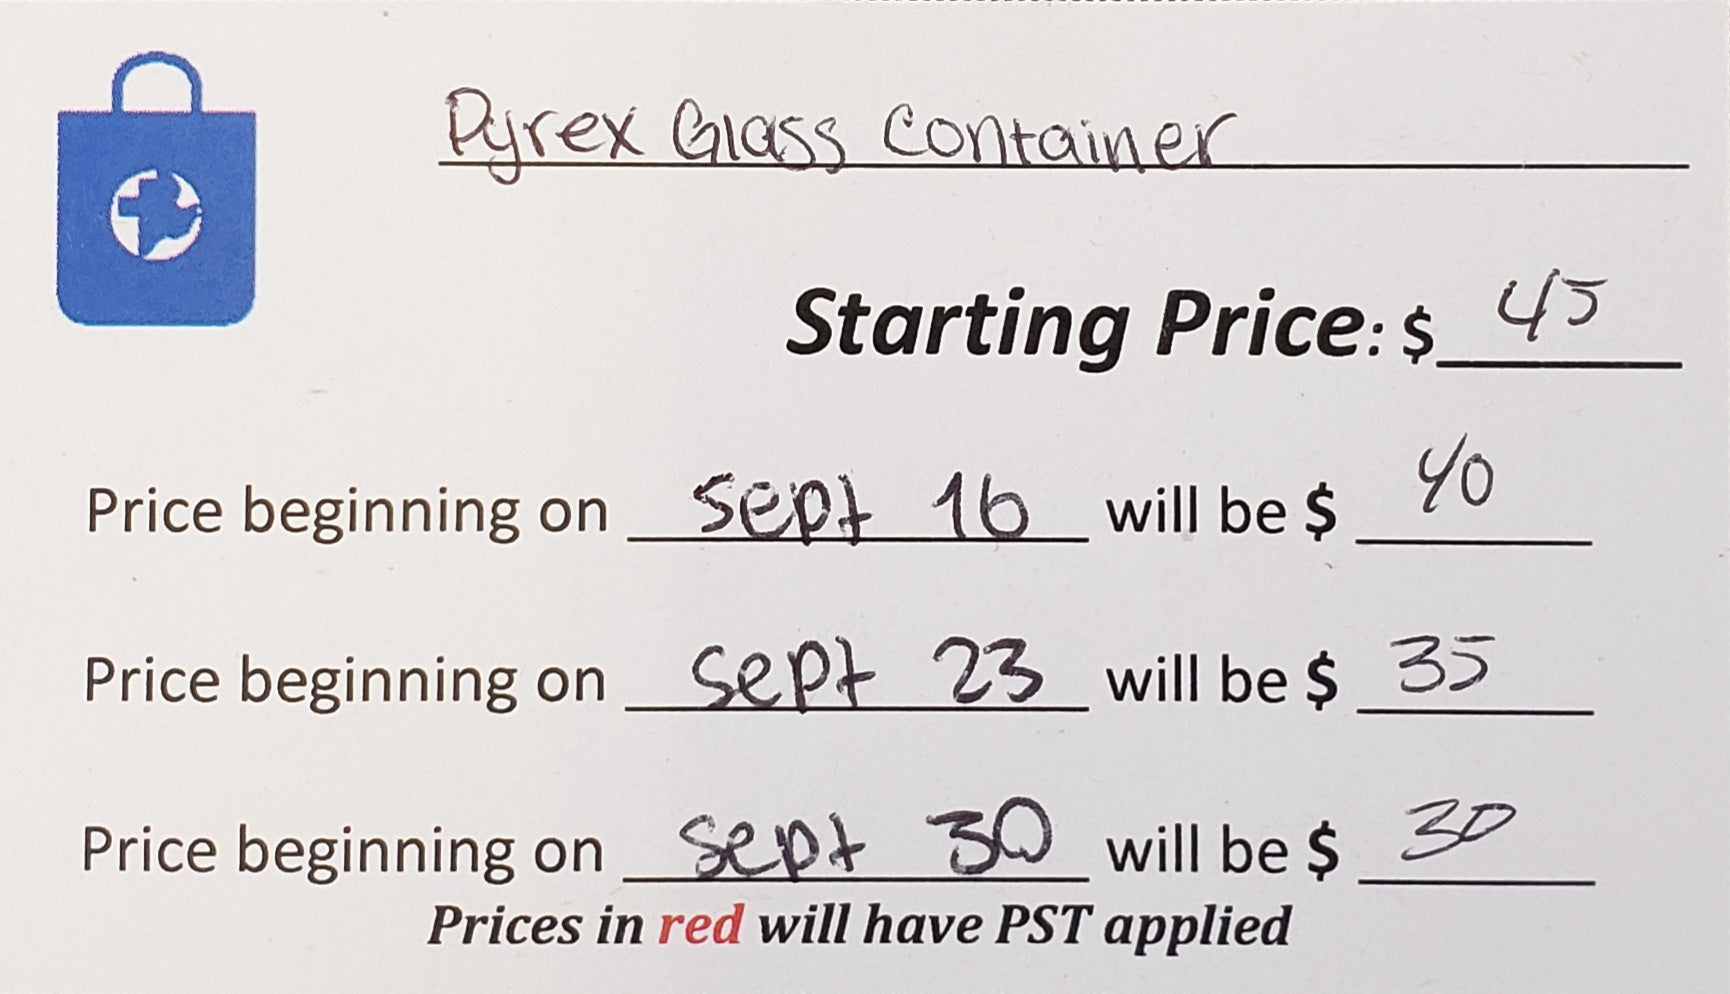 Pyrex Glass Container
Starting Price: $ 45
Price beginning on sept 16 will be $ 40
Price beginning on sept 23 will be $ 35
Price beginning on sept 30 will be $ 30
Prices in red will have PST applied